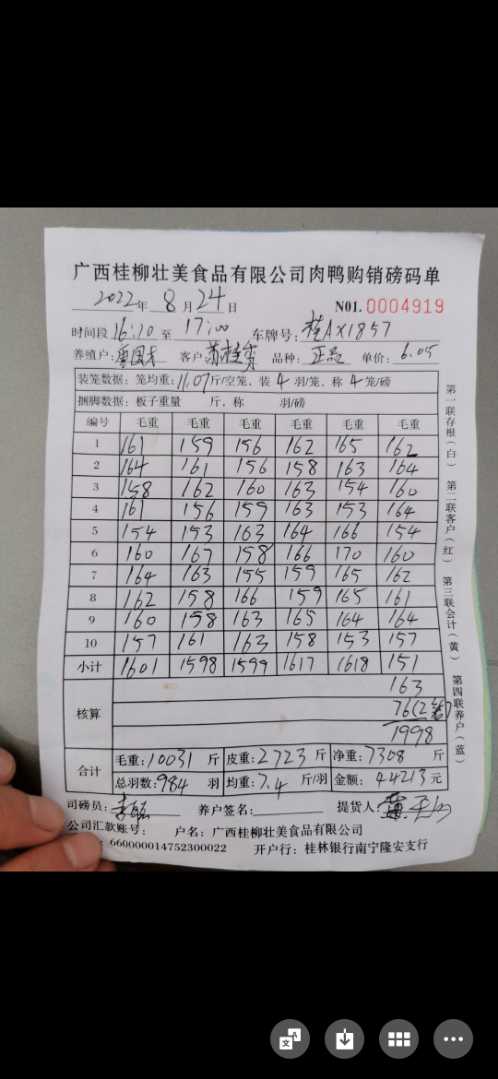 广西桂柳壮美食品有限公司肉鸭购销磅码单
2022年 8月24日 NO1. 0004919
时间段 16:10 至 17:00 车牌号: 桂AX1857
养殖户: 客户 品种: 正品 单价: 6.05
装笼数据: 笼均重: 11.07斤/空笼、装 4 羽/笼、称 4 笼/磅
捆脚数据: 板子重量 斤、称 羽/磅
编号 毛重 毛重 毛重 毛重 毛重 毛重
1 161 159 156 162 165 162
2 164 161 156 158 163 164
3 158 162 160 163 154 160
4 161 156 159 163 153 164
5 154 153 163 164 166 154
6 160 167 158 166 170 160
7 164 163 155 159 165 162
8 162 158 166 159 165 161
9 160 158 163 165 164 164
10 157 161 163 158 153 157
小计 1601 1598 1599 1617 1618 151
163
核算 76(2笼)
1998
合计 毛重: 10031 斤 皮重: 2723 斤 净重: 7308 斤
总羽数: 984 羽 均重: 7.4 斤/羽 金额: 44213 元
司磅员: 养户签名: 提货人:
公司汇款账号: 户名: 广西桂柳壮美食品有限公司
: 660000014752300022 开户行: 桂林银行南宁隆安支行
第一联存根(白) 第二联客户(红) 第三联会计(黄) 第四联养户(蓝)